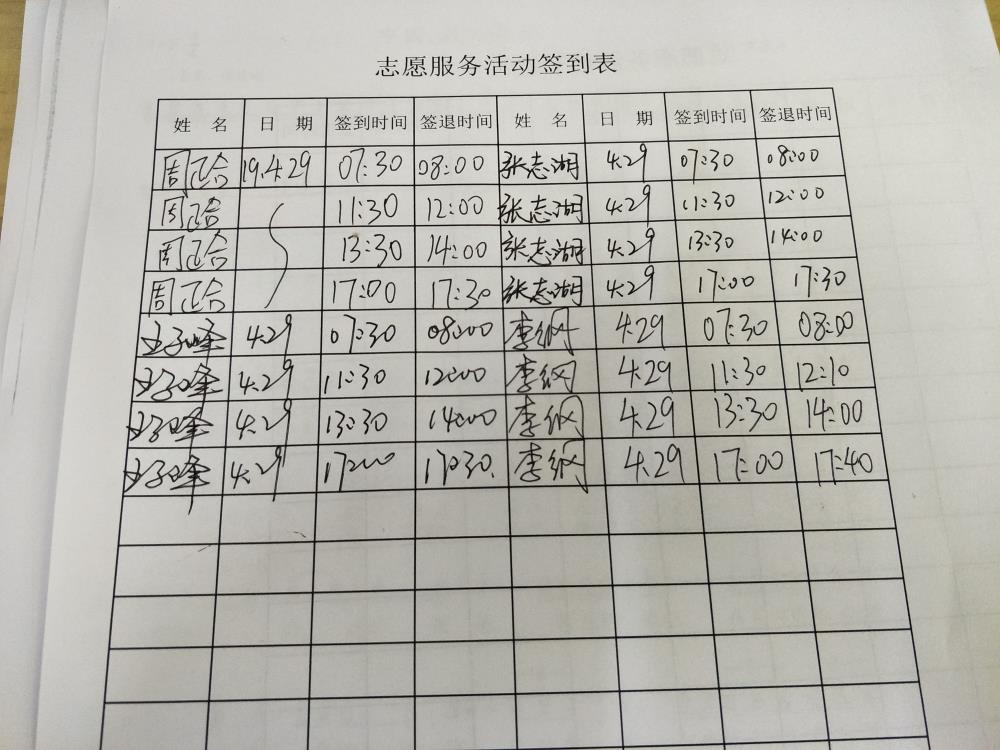 志愿服务活动签到表
姓 名 日 期 签到时间 签退时间 姓 名 日 期 签到时间 签退时间
周正合 19.4.29 07:30 08:00 张志湖 4.29 07:30 08:00
周正合 11:30 12:00 张志湖 4.29 11:30 12:00
周正合 13:30 14:00 张志湖 4.29 13:30 14:00
周正合 17:00 17:30 张志湖 4.29 17:00 17:30
4.29 07:30 08:00 李纲 4.29 07:30 08:00
4.29 11:30 12:00 李纲 4.29 11:30 12:10
4.29 13:30 14:00 李纲 4.29 13:30 14:00
4.29 17:00 17:30 李纲 4.29 17:00 17:40